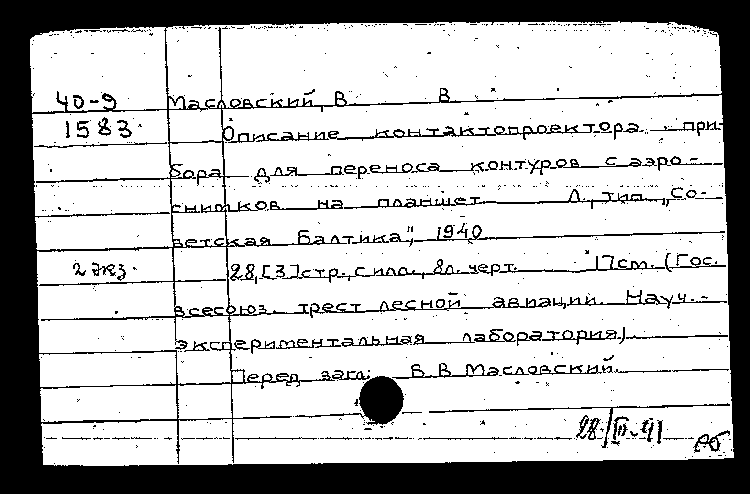 40-9 Масловский, В. В
1583. Описание контактопроектора при-
бора для переноса контуров с аэро-
снимков на планшет. Л., тип. „Со-
ветская Балтика", 1940
2 экз. 28, [3] стр., с илл., 2 л. черт. 17 см. (Гос.
всесоюз. трест лесной авиации. Науч.-
экспериментальная лаборатория).
Перед загл: В. В. Масловский.
28/III-41